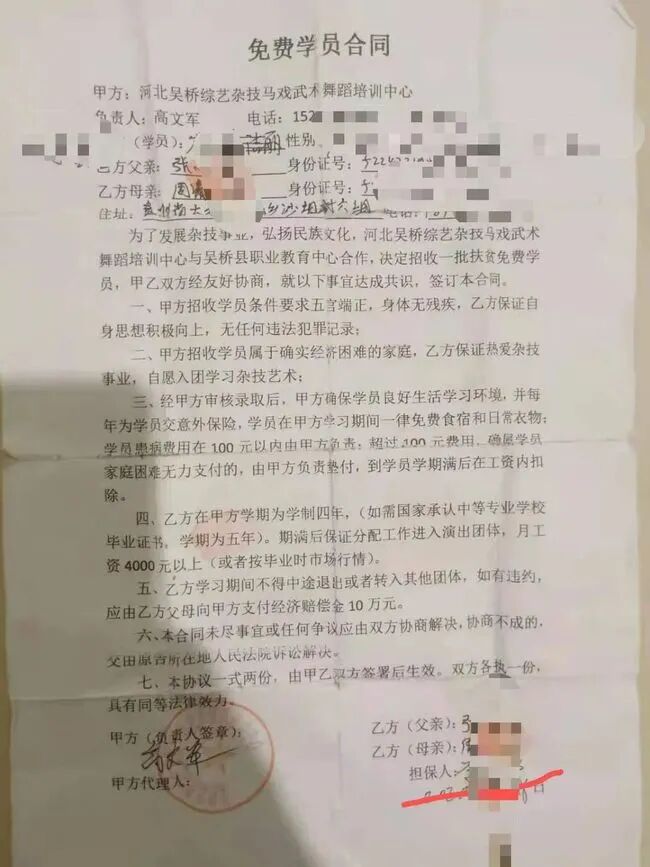 免费学员合同
甲方：河北吴桥综艺杂技马戏武术舞蹈培训中心
负责人：高文军 电话：152
（学员）： 丽 性别
乙方父亲：张 身份证号：5224
乙方母亲：周 身份证号：5
住址：贵州省大 乡沙坝村六组 电话：
为了发展杂技事业，弘扬民族文化，河北吴桥综艺杂技马戏武术
舞蹈培训中心与吴桥县职业教育中心合作，决定招收一批扶贫免费学
员，甲乙双方经友好协商，就以下事宜达成共识，签订本合同。
一、甲方招收学员条件要求五官端正，身体无残疾，乙方保证自
身思想积极向上，无任何违法犯罪记录；
二、甲方招收学员属于确实经济困难的家庭，乙方保证热爱杂技
事业，自愿入团学习杂技艺术；
三、经甲方审核录取后，甲方确保学员良好生活学习环境，并每
年为学员交意外保险，学员在甲方学习期间一律免费食宿和日常衣物；
学员患病费用在100元以内由甲方负责；超过100元费用，确属学员
家庭困难无力支付的，由甲方负责垫付，到学员学期满后在工资内扣
除。
四、乙方在甲方学期为学制四年，（如需国家承认中等专业学校
毕业证书，学期为五年）。期满后保证分配工作进入演出团体，月工
资4000元以上（或者按毕业时市场行情）。
五、乙方学习期间不得中途退出或者转入其他团体，如有违约，
应由乙方父母向甲方支付经济赔偿金10万元。
六、本合同未尽事宜或任何争议应由双方协商解决，协商不成的，
交由原告所在地人民法院诉讼解决。
七、本协议一式两份，由甲乙双方签署后生效。双方各执一份，
具有同等法律效力。
甲方（负责人签章）：
高文军
甲方代理人：
乙方（父亲）：
乙方（母亲）：
担保人：
日